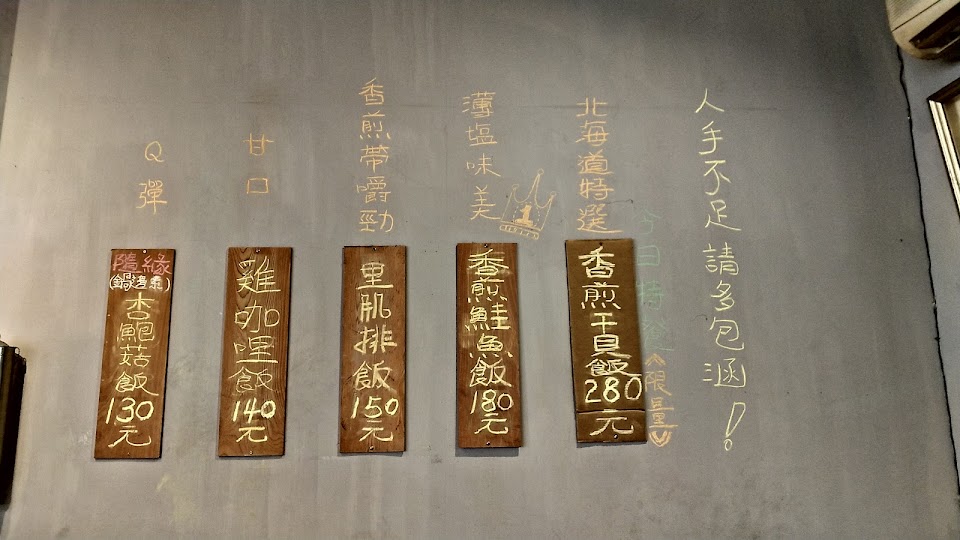 人手不足請多包涵！
北海道特選
今日特餐
《限量》
香煎干貝飯
280
元
薄塩味美
1
香煎鮭魚飯
180
元
香煎帶嚼勁
里肌排飯
150
元
甘口
雞咖哩飯
140
元
Q彈
隨緣
(鍋邊素)
杏鮑菇飯
130
元